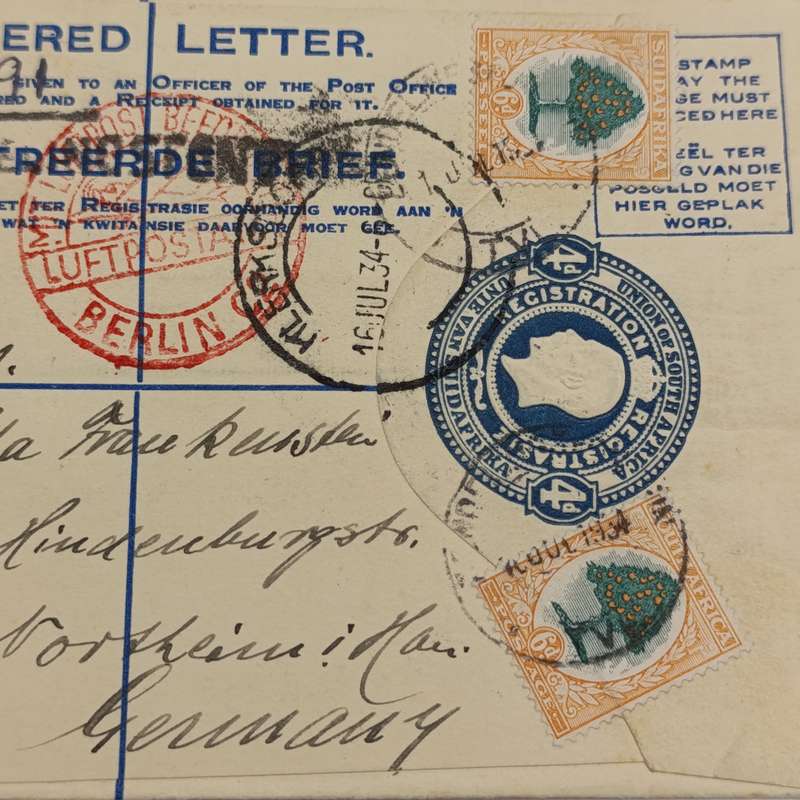 ERED LETTER.
91
GIVEN TO AN OFFICER OF THE POST OFFICE
RED AND A RECEIPT OBTAINED FOR IT.
TREERDE BRIEF.
ET TER REGISTRASIE OORHANDIG WORD AAN 'N
WAT 'N KWITANSIE DAARVOOR MOET GEE.
LUFTPOST
BERLIN C
16 JUL 34
6d
SUIDAFRIKA
STAMP
AY THE
GE MUST
CED HERE
EËL TER
G VAN DIE
POSGELD MOET
HIER GEPLAK
WORD.
TVL
4D
UNION OF SOUTH AFRICA
UNIE VAN SUIDAFRIKA
REGISTRATION
REGISTRASIE
4D
JUL 1934
6d
SOUTH AFRICA
POSTAGE
Frankenstein
Hindenburgstr.
Northeim i Han.
Germany